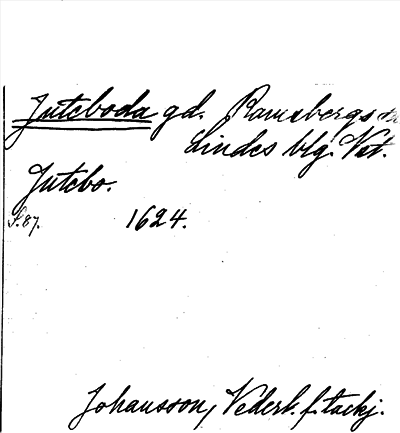 Juteboda gd. Ramsbergs sn
Lindes blg. Vst.
Jutebo.
S. 87. 1624.
Johansson, Nederl. f. tackj.